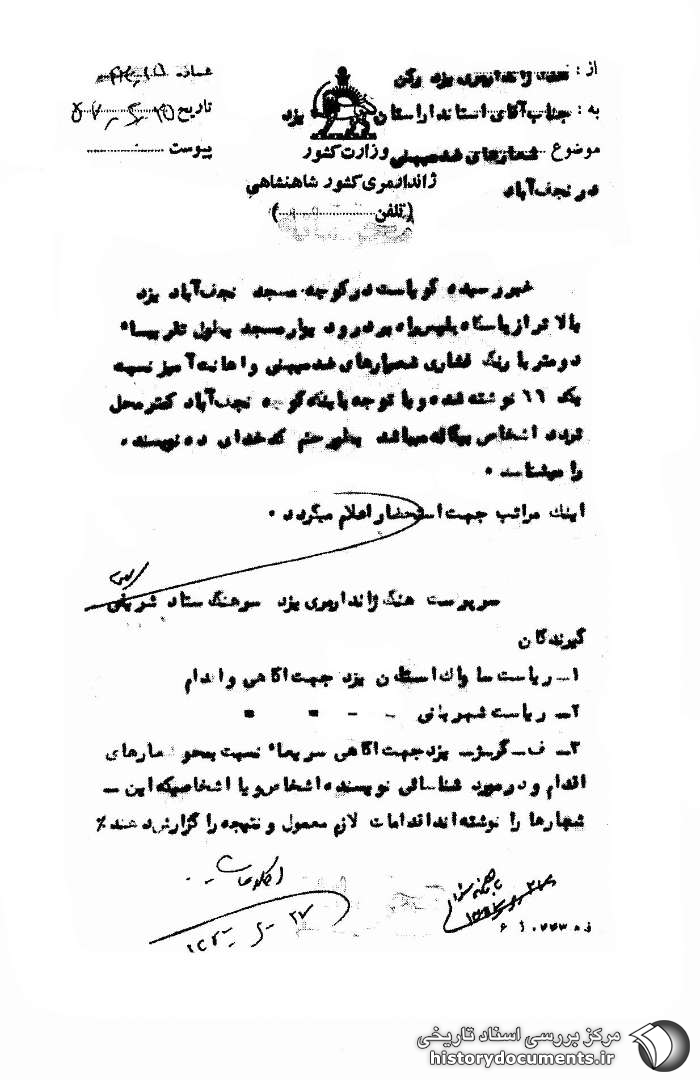 از : هنگ ژاندارمری یزد رکن
شماره
به : جناب آقای استاندار استان یزد
تاریخ
موضوع شعارهای ضدمیهنی
پیوست
در نجف‌آباد
وزارت کشور
ژاندارمری کشور شاهنشاهی
(تلفن)
خبر رسیده گویاست در کوچه مسجد نجف‌آباد یزد
بالاتر از پاسگاه پلیس‌راه بر در و دیوار مسجد بطول تقریباً
دو متر با رنگ فشاری شعارهای ضدمیهنی و اهانت‌آمیز نسبت
یک ۶۶ نوشته شده و با توجه باینکه کوچه نجف‌آباد کمتر محل
تردد اشخاص بیگانه میباشد بطور حتم کدخدای ده نویسنده
را میشناسد .
اینک مراتب جهت استحضار اعلام میگردد .
سرپرست هنگ ژاندارمری یزد سرهنگ ستاد شریفی
گیرندگان
۱ــ ریاست ساواک استان یزد جهت آگاهی و اقدام
۲ــ ریاست شهربانی ـ ـ " "
۳ــ ف ــ گر ــ یزد جهت آگاهی سریعاً نسبت بمحو شعارهای
اقدام و در مورد شناسائی نویسنده اشخاص و یا اشخاصیکه این ــ
شعارها را نوشته‌اند اقدامات لازم معمول و نتیجه را گزارش دهند ٪
مرکز بررسی اسناد تاریخی
historydocuments.ir